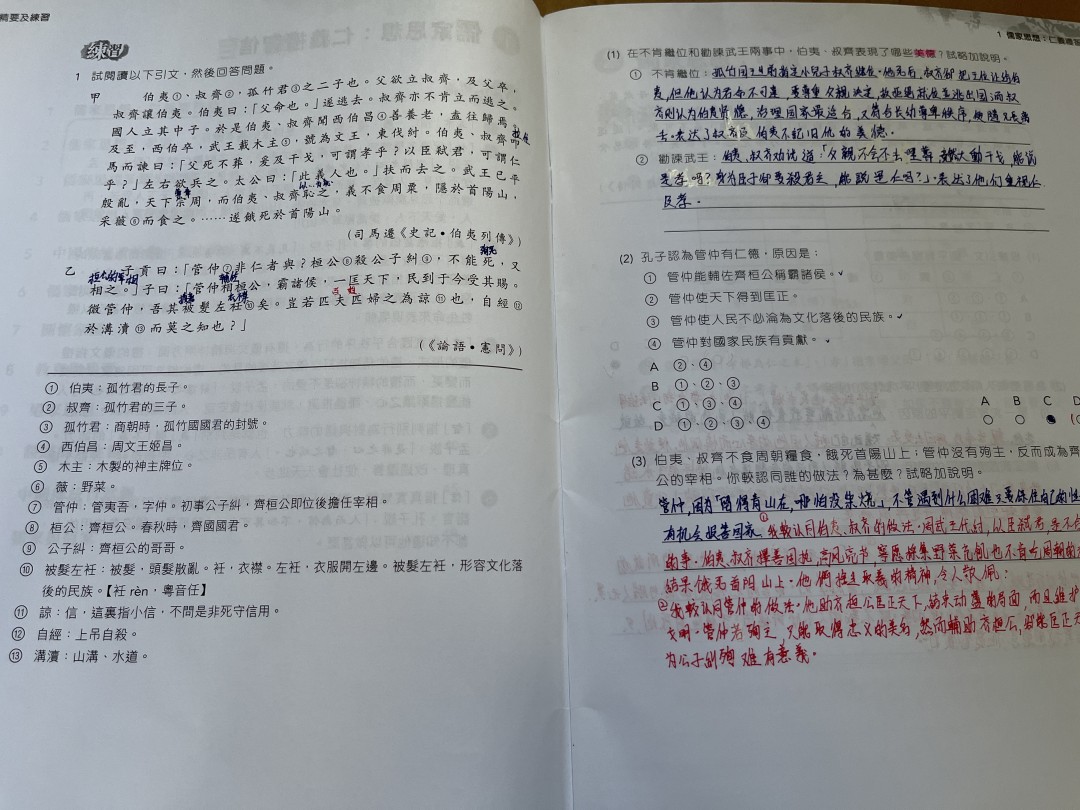 精要及練習
練習
1 試閱讀以下引文，然後回答問題。
甲 伯夷①、叔齊②，孤竹君③之二子也。父欲立叔齊，及父卒，
叔齊讓伯夷。伯夷曰：「父命也。」遂逃去。叔齊亦不肯立而逃之。
國人立其中子。於是伯夷、叔齊聞西伯昌④善養老，盍往歸焉。
及至，西伯卒，武王載木主⑤，號為文王，東伐紂。伯夷、叔齊叩
馬而諫曰：「父死不葬，爰及干戈，可謂孝乎？以臣弒君，可謂仁
乎？」左右欲兵之。太公曰：「此義人也。」扶而去之。武王已平
殷亂，天下宗周，而伯夷、叔齊恥之，義不食周粟，隱於首陽山，
采薇⑥而食之。……遂餓死於首陽山。
（司馬遷《史記•伯夷列傳》）
殉死
乙 子貢曰：「管仲⑦非仁者與？桓公⑧殺公子糾⑨，不能死，又
相之。」子曰：「管仲相桓公，霸諸侯，一匡天下，民到于今受其賜。
微管仲，吾其被髮左衽⑩矣。豈若匹夫匹婦之為諒⑪也，自經⑫
於溝瀆⑬而莫之知也？」
（《論語•憲問》）
① 伯夷：孤竹君的長子。
② 叔齊：孤竹君的三子。
③ 孤竹君：商朝時，孤竹國國君的封號。
④ 西伯昌：周文王姬昌。
⑤ 木主：木製的神主牌位。
⑥ 薇：野菜。
⑦ 管仲：管夷吾，字仲。初事公子糾，齊桓公即位後擔任宰相。
⑧ 桓公：齊桓公。春秋時，齊國國君。
⑨ 公子糾：齊桓公的哥哥。
⑩ 被髮左衽：被髮，頭髮散亂。衽，衣襟。左衽，衣服開左邊。被髮左衽，形容文化落
後的民族。【衽 rèn，粵音任】
⑪ 諒：信，這裏指小信，不問是非死守信用。
⑫ 自經：上吊自殺。
⑬ 溝瀆：山溝、水道。
1 儒家思想：仁義禮
(1) 在不肯繼位和勸諫武王兩事中，伯夷、叔齊表現了哪些美德？試略加說明。
① 不肯繼位：孤竹国王生前指定小兒子叔齐繼位，他死后，叔齐卻把王位让給伯
夷，但他认为君命不可違，尊重父親決定，
叔齐
则认为伯夷賢德，治理国家最适合，又符合长幼尊卑秩序，
去，表达了叔齐及伯夷不記旧他的美德。
② 勸諫武王：伯夷、叔齐劝说道：「父親不会不去埋葬，大動干戈，能説
是孝吗？身为臣子卻要殺君主，能說是仁吗？」，表达了他们重視仁
及孝。
(2) 孔子認為管仲有仁德，原因是：
① 管仲能輔佐齊桓公稱霸諸侯。✓
② 管仲使天下得到匡正。
③ 管仲使人民不必淪為文化落後的民族。✓
④ 管仲對國家民族有貢獻。✓
A ②、④
B ①、②、③
C ①、③、④
D ①、②、③、④
A B C D
(3) 伯夷、叔齊不食周朝糧食，餓死首陽山上；管仲沒有殉主，反而成為齊
公的宰相。你較認同誰的做法？為甚麼？試略加說明。
管仲，因为「留得青山在，哪怕没柴燒」，不管遇到什么困难又要保住自己的性
有机会报答回家。
①我較认同伯夷、叔齐的做法。周武王伐紂，以臣弒君是不
的事。伯夷、叔齐擇善固执，高风亮节，寧愿採集野菜充飢也不肯吃周朝的
结果饿死首阳山上。他們捨生取義的精神，令人敬佩；
②我較认同管仲的做法。他助齐桓公匡正天下，結束动盪的局面，而且維护
文明。管仲若殉主，又能取得忠义的美名，然而輔助齐桓公，卻能匡正天
为公子糾殉难有意義。